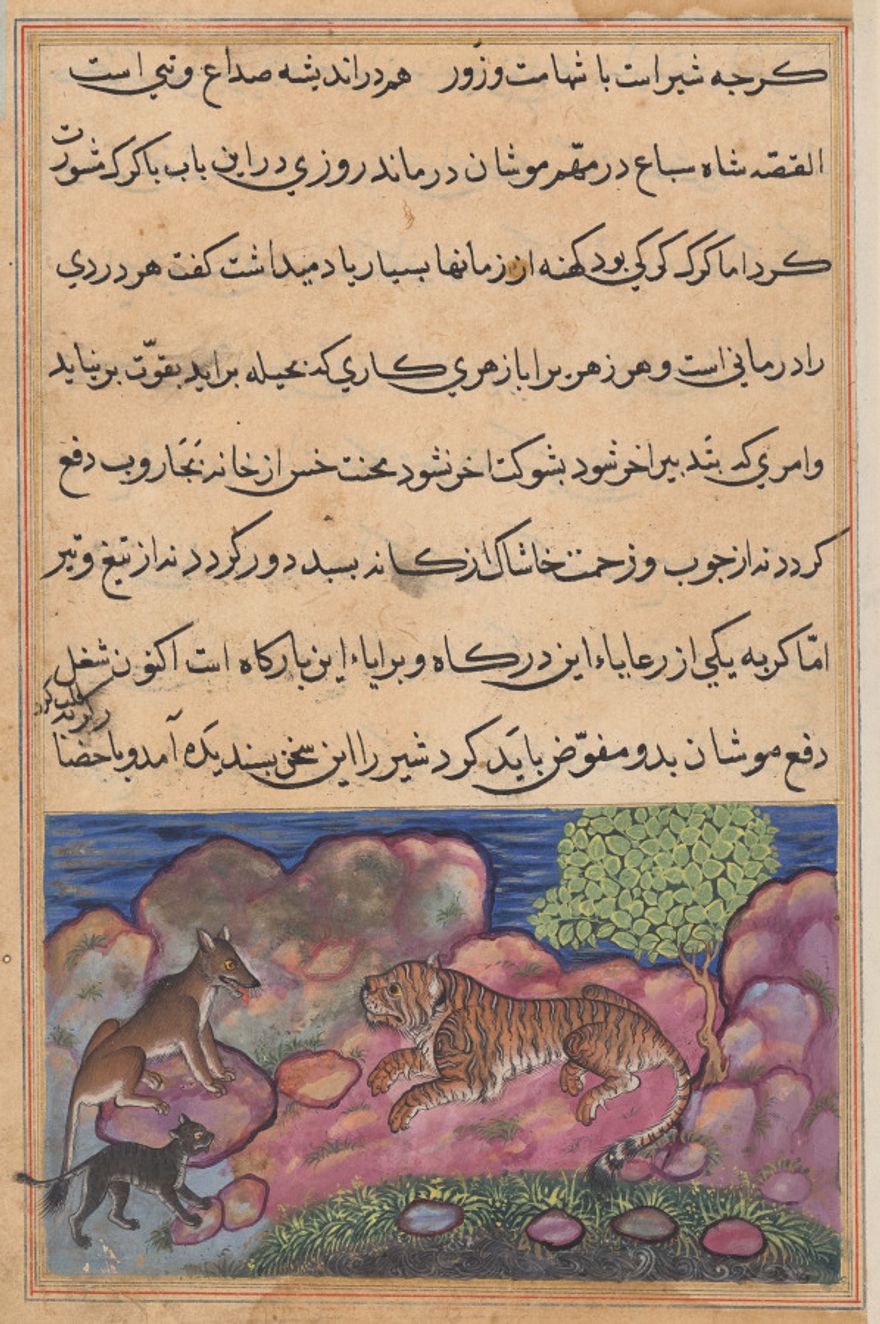 کرجه شیر است با شهامت و زور هم در اندیشه صداع و تبی است
القصّه شاه سباع در مهمّ موشان درماند روزی در این باب با کرک مشورت
کرد اما کرک کرکی بود کهنه از زمانها بسیار یاد میداشت کفت هر دردی
را درمانی است و هر زهر برا بازهری کاری که بحیله براید بقوّت بر نیاید
و امری که بتدبیر اخر شود بشوکت اخر نشود محنت خس از خانه بجاروب دفع
کردد نه از جوب و زحمت خاشاک از کانه بسبد دور کردد نه از تیغ و تیر
امّا کربه یکی از رعایاء این درکاه و برایاء این بارکاه است اکنون شغل
دفع موشان بدو مفوّض باید کرد شیر را این سخن بسندیده آمد و باحضار
کربه طلب کرد